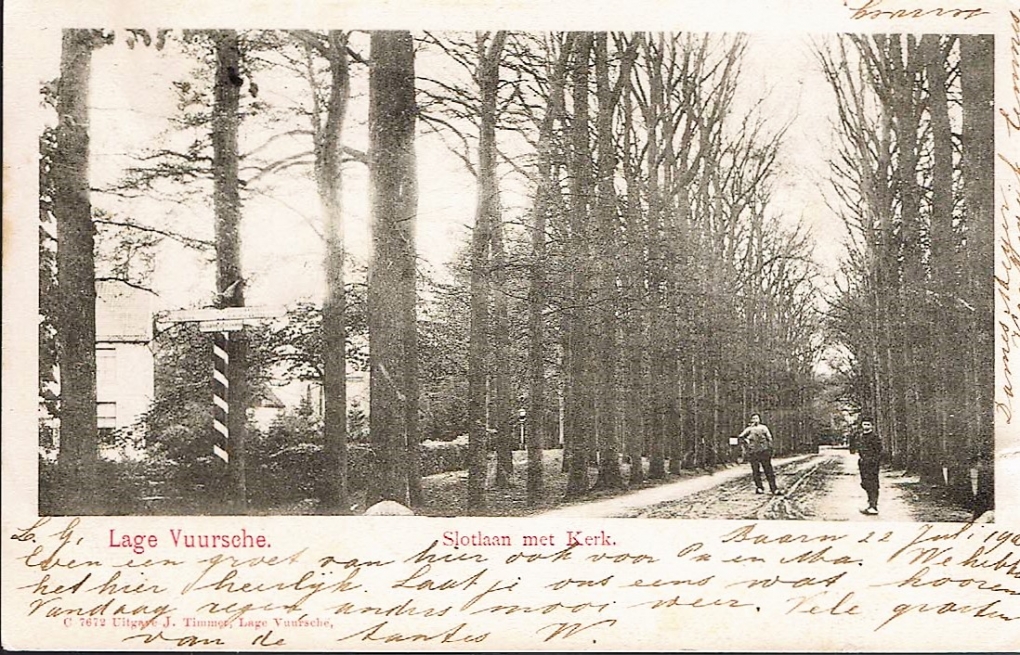 Lage Vuursche.
Slotlaan met Kerk.
L. G. Baarn 22 Juli 190
Even een groet van hier ook voor Pa en Ma. We hebbe
het hier heerlijk. Laat je ons eens wat hooren
Vandaag regen anders mooi weer. Vele groeten
van de tantes W.
C 7672 Uitgave J. Timmer, Lage Vuursche,